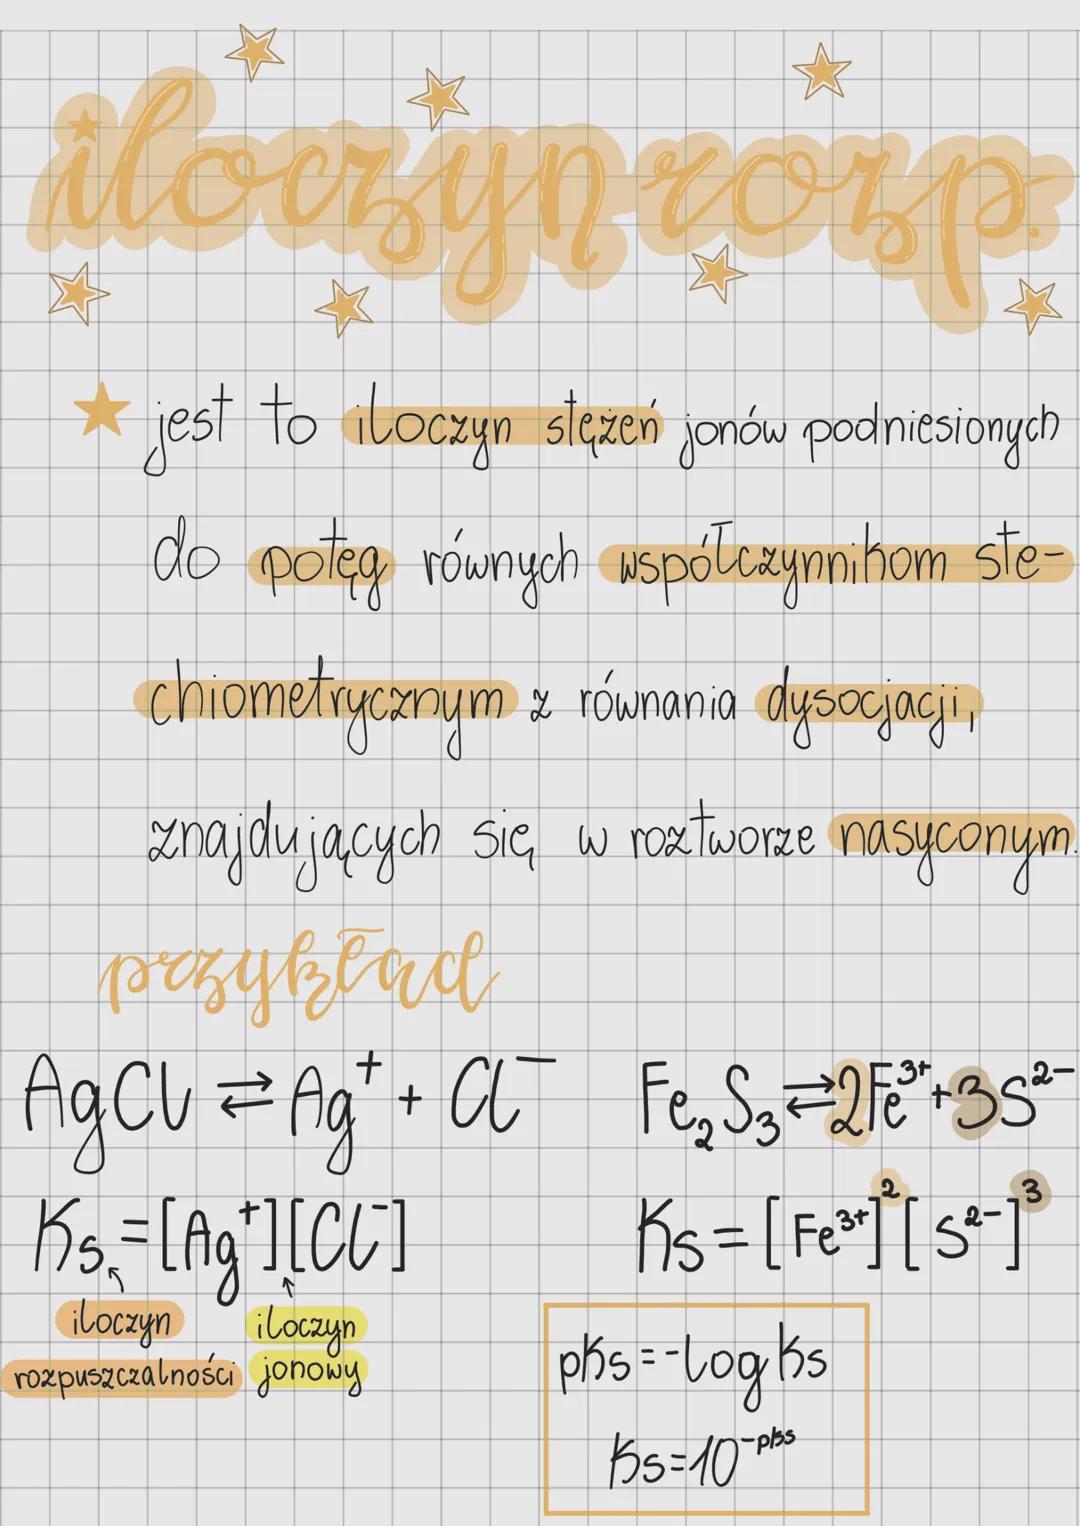 iloczyn rozp.
jest to iloczyn stężeń jonów podniesionych
do potęg równych współczynnikom ste-
chiometrycznym z równania dysocjacji,
znajdujących się w roztworze nasyconym.
przykład
AgCl ⇄ Ag⁺ + Cl⁻
Ks = [Ag⁺][Cl⁻]
iloczyn rozpuszczalności
iloczyn jonowy
Fe₂S₃ ⇄ 2Fe³⁺ + 3S²⁻
Ks = [Fe³⁺]² [S²⁻]³
pKs = -log Ks
Ks = 10^-pKs